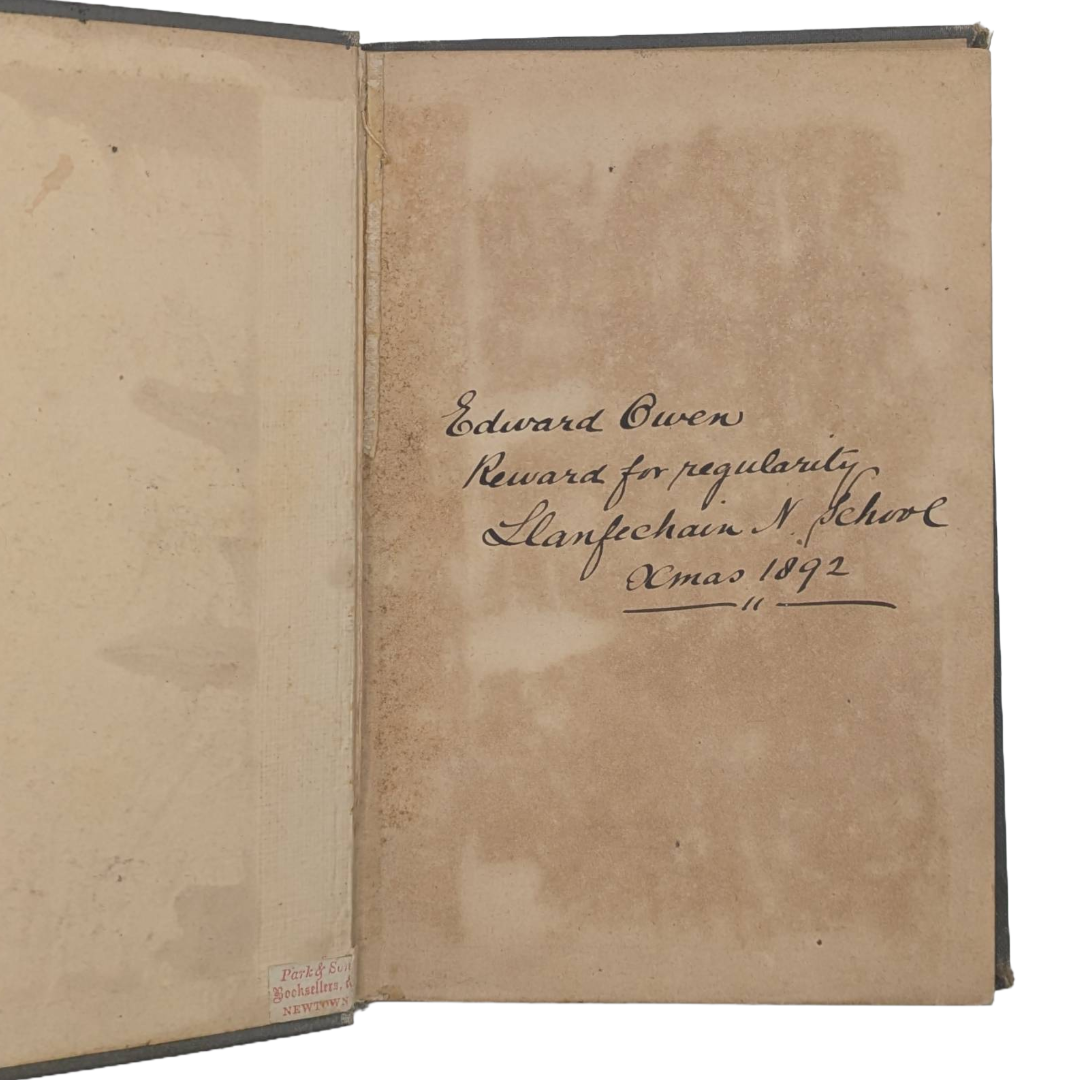 Park & Son
Booksellers, &
NEWTOWN
Edward Owen
Reward for regularity
Llanfechain N. School
Xmas 1892